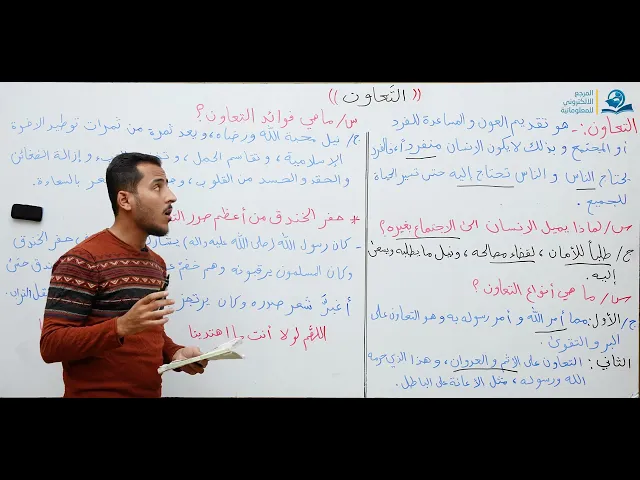 المرجع
الالكتروني
للمعلوماتية
(( التعاون ))
التعاون :- هو تقديم العون والمساعدة للفرد
أو المجتمع و بذلك لا يكون الإنسان منفرداً، فالفرد
يحتاج الناس و الناس تحتاج إليه حتى تسير الحياة
للجميع .
س/ لماذا يميل الانسان الى الاجتماع بغيره؟
ج/ طلباً للأمان ، لقضاء مصالحه ، ونيل ما يطلبه ويسعى
إليه .
س/ ما هي أنواع التعاون ؟
ج/ الأول: مما أمر الله و أمر رسوله به و هو التعاون على
البر و التقوى .
الثاني: التعاون على الإثم و العدوان ، و هذا الذي حرمه
الله ورسوله ، مثل الاعانة على الباطل .
س/ ما هي فوائد التعاون ؟
ج/ نيل محبة الله ورضاه ، و يعد ثمرة من ثمرات توطيد الاخوة
الإسلامية ، و تقاسم الحمل ، و إزالة الضغائن
و الحقد و الحسد من القلوب ، بالسعادة .
* حفر الخندق من أعظم صور
- كان رسول الله (صلى الله عليه واله) يشارك حفر الخندق
وكان المسلمون يرقبونه و هم حتى
أغبرَّ شعر صدره وكان يرتجز التراب .
اللهم لولا أنت ما اهتدينا